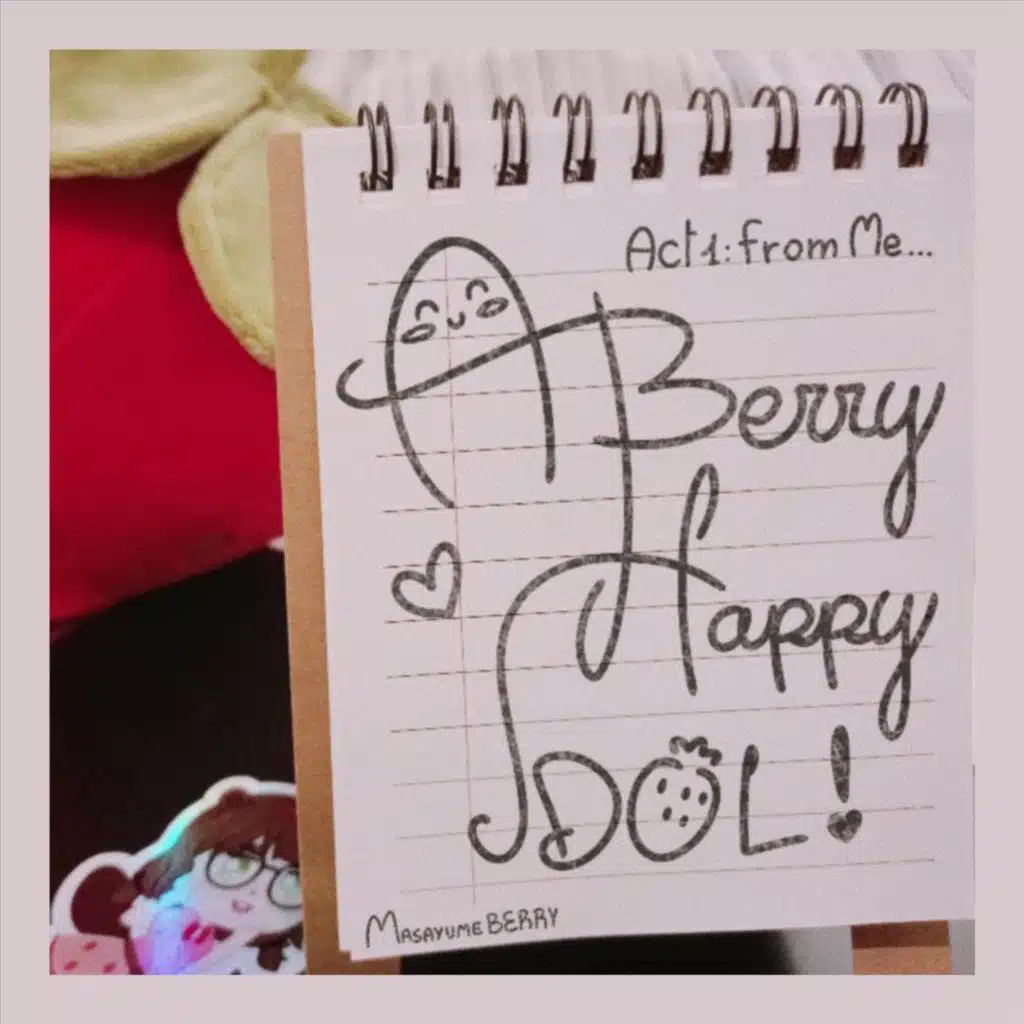 Act 1: from Me...
A Berry
Happy
IDOL!
MASAYUME BERRY